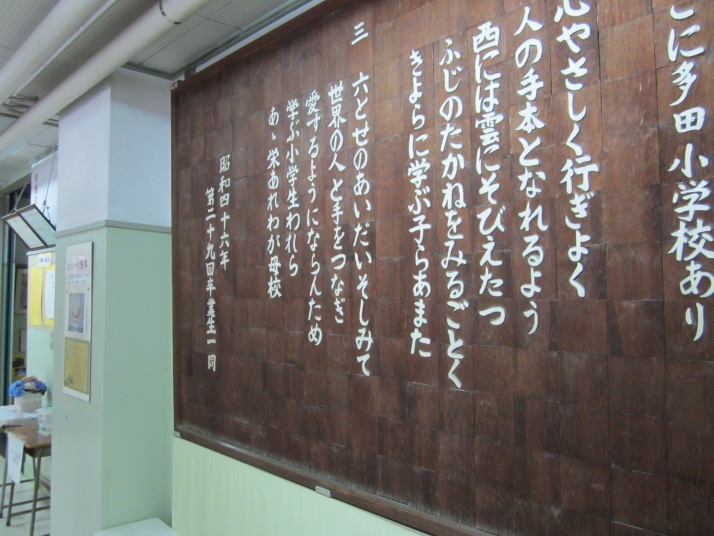 こに多田小学校あり
心やさしく行ぎよく
人の手本となれるよう
西には雲にそびえたつ
ふじのたかねをみるごとく
きよらに学ぶ子らあまた
三 六とせのあいだいそしみて
世界の人と手をつなぎ
愛するようにならんため
学ぶ小学生われら
あゝ栄あれわが母校
昭和四十六年
第二十九回卒業生一同